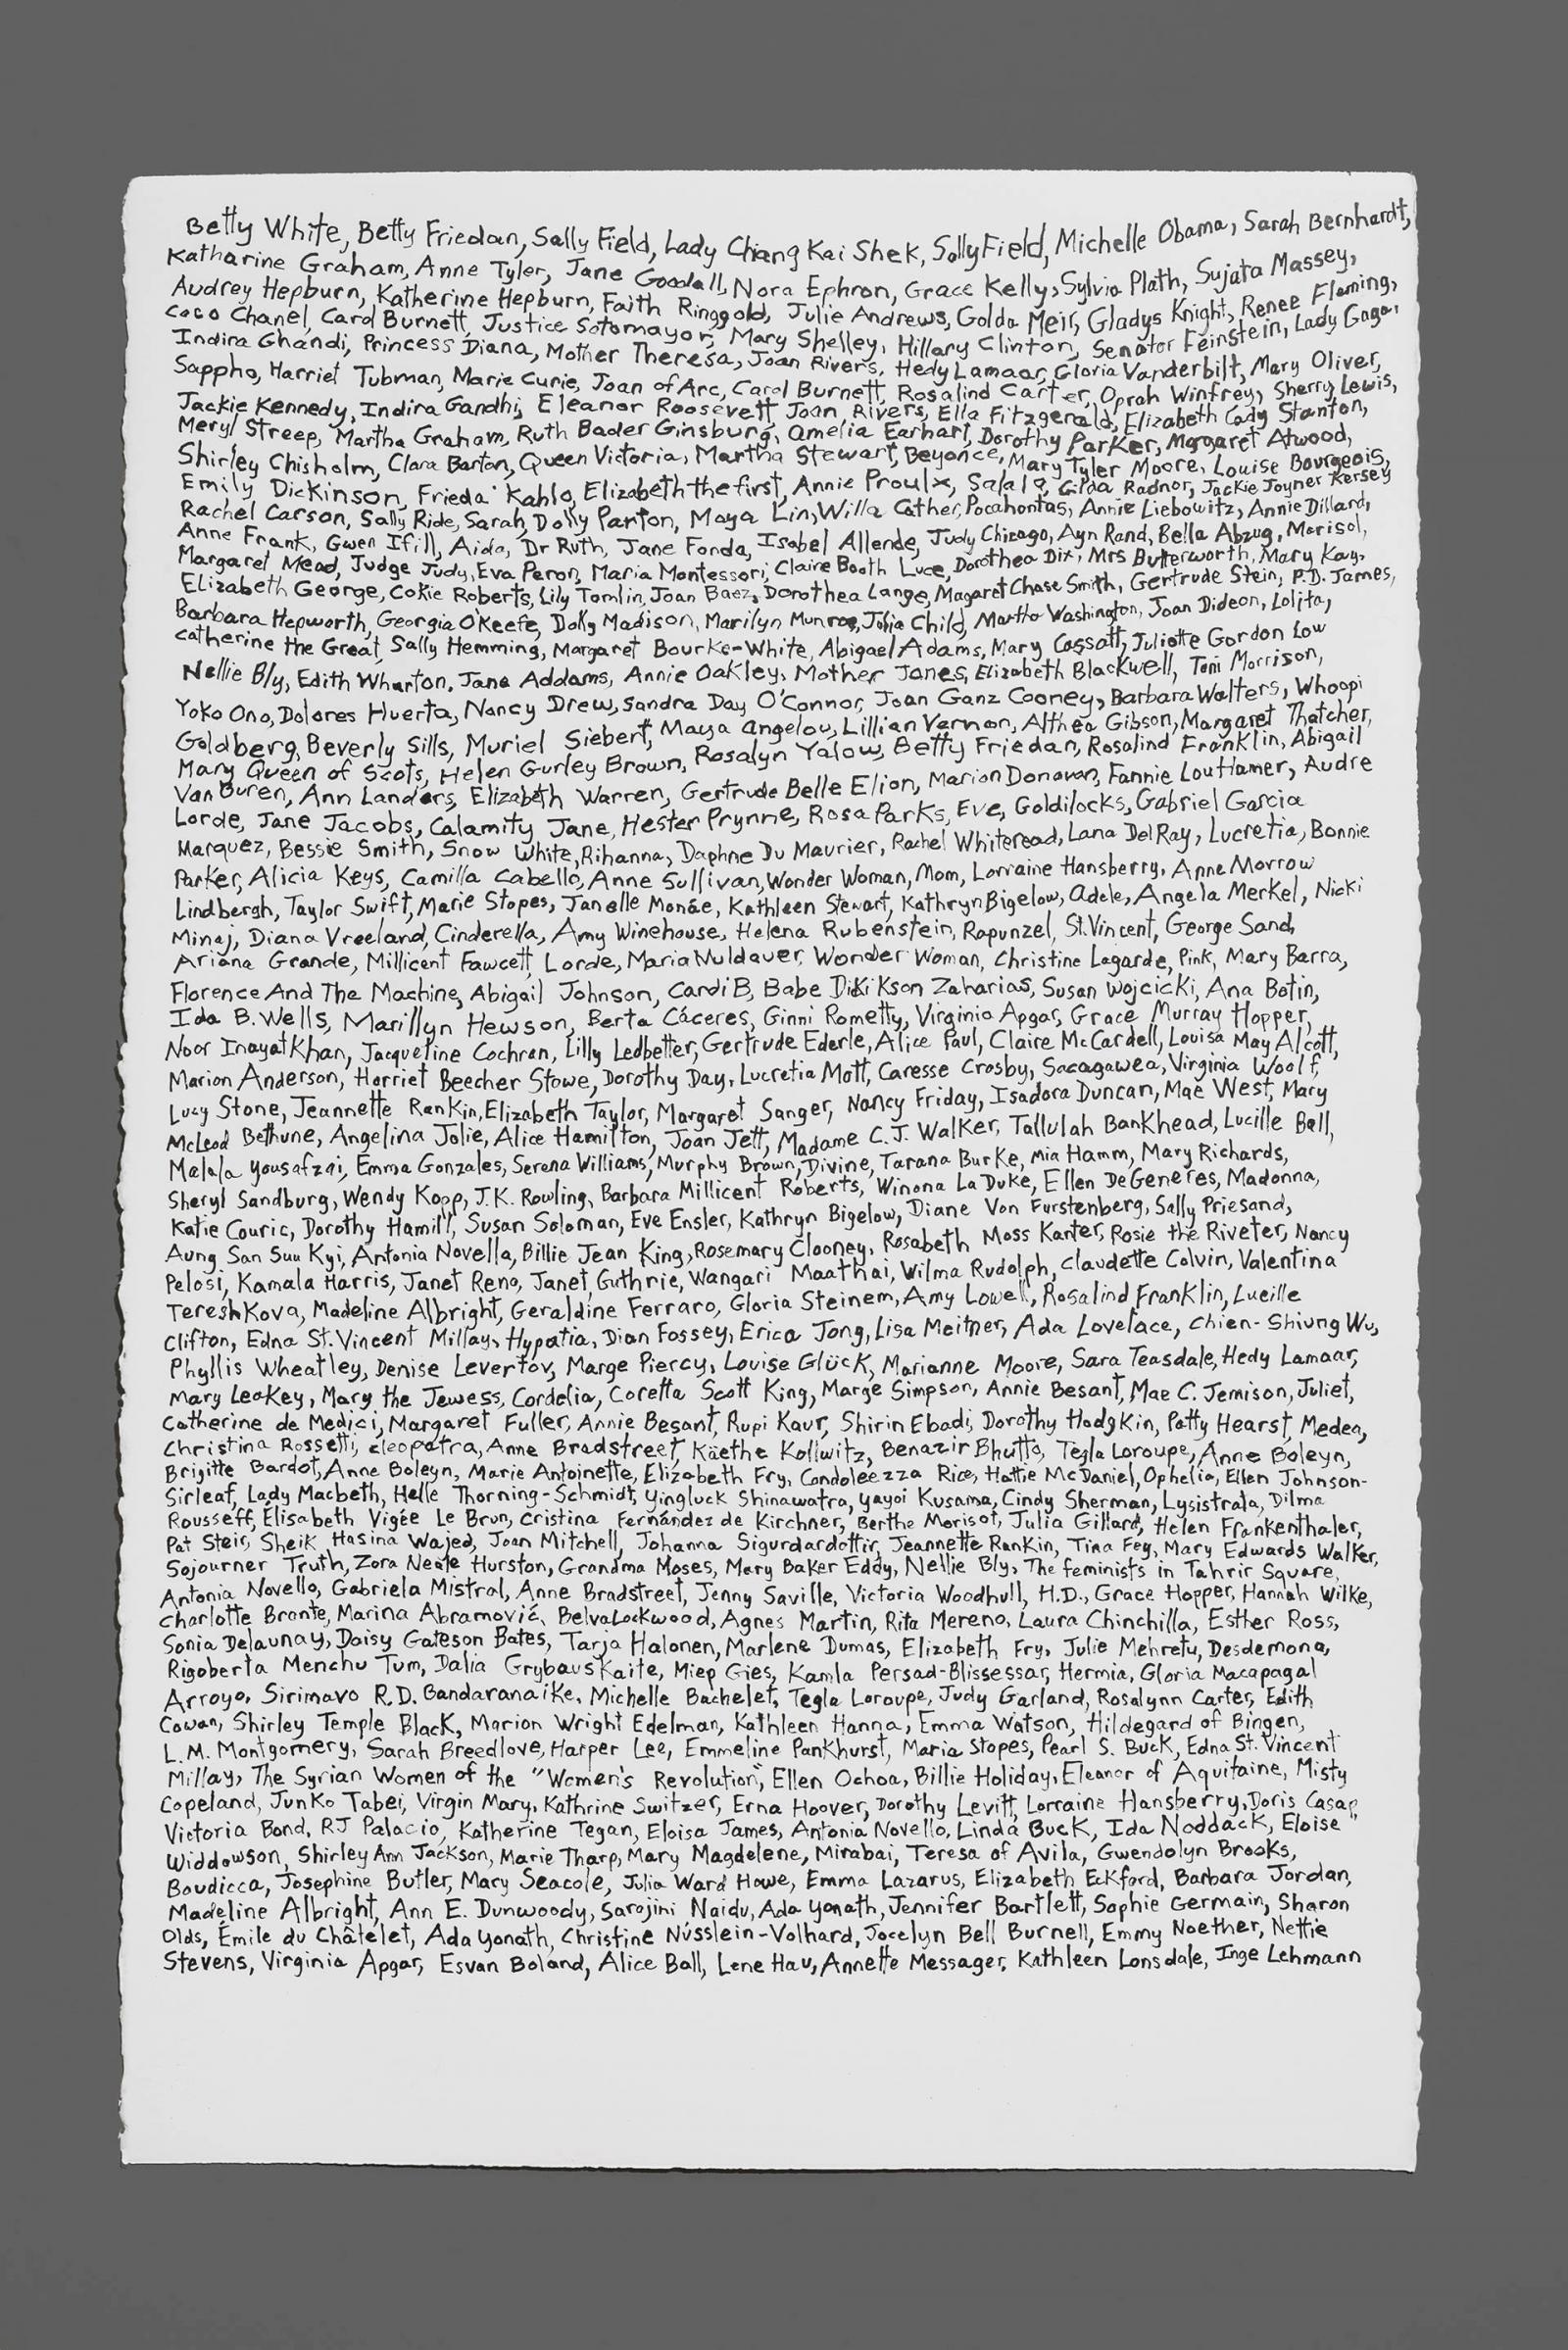 Betty White, Betty Friedan, Sally Field, Lady Chiang Kai Shek, Sally Field, Michelle Obama, Sarah Bernhardt,
Katharine Graham, Anne Tyler, Jane Goodall, Nora Ephron, Grace Kelly, Sylvia Plath, Sujata Massey,
Audrey Hepburn, Katherine Hepburn, Faith Ringgold, Julie Andrews, Golda Meir, Gladys Knight, Renee Fleming,
Coco Chanel, Carol Burnett, Justice Sotomayor, Mary Shelley, Hillary Clinton, Senator Feinstein, Lady Gaga,
Indira Ghandi, Princess Diana, Mother Theresa, Joan Rivers, Hedy Lamaar, Gloria Vanderbilt, Mary Oliver,
Sappho, Harriet Tubman, Marie Curie, Joan of Arc, Carol Burnett, Rosalind Carter, Oprah Winfrey, Sherry Lewis,
Jackie Kennedy, Indira Gandhi, Eleanor Roosevett, Joan Rivers, Ella Fitzgerald, Elizabeth Cady Stanton,
Meryl Streep, Martha Graham, Ruth Bader Ginsburg, Amelia Earhart, Dorothy Parker, Margaret Atwood,
Shirley Chisholm, Clara Barton, Queen Victoria, Martha Stewart, Beyonce, Mary Tyler Moore, Louise Bourgeois,
Emily Dickinson, Frieda Kahlo, Elizabeth the first, Annie Proulx, Gilda Radnor, Jackie Joyner Kersey
Rachel Carson, Sally Ride, Sarah, Dolly Parton, Maya Lin, Willa Cather, Pocahontas, Annie Liebowitz, Annie Dillard,
Anne Frank, Gwen Ifill, Aida, Dr Ruth, Jane Fonda, Isabel Allende, Judy Chicago, Ayn Rand, Bella Abzug, Marisol,
Margaret Mead, Judge Judy, Eva Peron, Maria Montessori, Claire Booth Luce, Dorothea Dix, Mrs Butterworth, Mary Kay,
Elizabeth George, Cokie Roberts, Lily Tomlin, Joan Baez, Dorothea Lange, Magaret Chase Smith, Gertrude Stein, P.D. James,
Barbara Hepworth, Georgia O'Keefe, Dolly Madison, Marilyn Munroe, Julia Child, Martha Washington, Joan Dideon, Lolita,
Catherine the Great, Sally Hemming, Margaret Bourke-White, Abigael Adams, Mary Cassatt, Juliette Gordon Low
Nellie Bly, Edith Wharton, Jane Addams, Annie Oakley, Mother Jones, Elizabeth Blackwell, Toni Morrison,
Yoko Ono, Dolores Huerta, Nancy Drew, Sandra Day O'Connor, Joan Ganz Cooney, Barbara Walters, Whoopi
Goldberg, Beverly Sills, Muriel Siebert, Maya Angelou, Lillian Vernon, Althea Gibson, Margaret Thatcher,
Mary Queen of Scots, Helen Gurley Brown, Rosalyn Yalow, Betty Friedan, Rosalind Franklin, Abigail
Van Buren, Ann Landers, Elizabeth Warren, Gertrude Belle Elion, Marion Donovan, Fannie Lou Hamer, Audre
Lorde, Jane Jacobs, Calamity Jane, Hester Prynne, Rosa Parks, Eve, Goldilocks, Gabriel Garcia
Marquez, Bessie Smith, Snow White, Rihanna, Daphne Du Maurier, Rachel Whiteread, Lana Del Ray, Lucretia, Bonnie
Parker, Alicia Keys, Camilla Cabello, Anne Sullivan, Wonder Woman, Mom, Lorraine Hansberry, Anne Morrow
Lindbergh, Taylor Swift, Marie Stopes, Janelle Monáe, Kathleen Stewart, Kathryn Bigelow, Adele, Angela Merkel, Nicki
Minaj, Diana Vreeland, Cinderella, Amy Winehouse, Helena Rubenstein, Rapunzel, St. Vincent, George Sand,
Ariana Grande, Millicent Fawcett, Lorde, Maria Muldauer, Wonder Woman, Christine Lagarde, Pink, Mary Barra,
Florence And The Machine, Abigail Johnson, Cardi B, Babe Zaharias, Susan Wojcicki, Ana Botin,
Ida B. Wells, Marillyn Hewson, Berta Cáceres, Ginni Rometty, Virginia Apgar, Grace Murray Hopper,
Noor Inayat Khan, Jacqueline Cochran, Lilly Ledbetter, Gertrude Ederle, Alice Paul, Claire McCardell, Louisa May Alcott,
Marion Anderson, Harriet Beecher Stowe, Dorothy Day, Lucretia Mott, Caresse Crosby, Sacagawea, Virginia Woolf,
Lucy Stone, Jeannette Rankin, Elizabeth Taylor, Margaret Sanger, Nancy Friday, Isadora Duncan, Mae West, Mary
McLeod Bethune, Angelina Jolie, Alice Hamilton, Joan Jett, Madame C.J. Walker, Tallulah Bankhead, Lucille Ball,
Malala Yousafzai, Emma Gonzales, Serena Williams, Murphy Brown, Divine, Tarana Burke, Mia Hamm, Mary Richards,
Sheryl Sandburg, Wendy Kopp, J.K. Rowling, Barbara Millicent Roberts, Winona La Duke, Ellen DeGeneres, Madonna,
Katie Couric, Dorothy Hamill, Susan Soloman, Eve Ensler, Kathryn Bigelow, Diane Von Furstenberg, Sally Priesand,
Aung San Suu Kyi, Antonia Novella, Billie Jean King, Rosemary Clooney, Rosabeth Moss Kanter, Rosie the Riveter, Nancy
Pelosi, Kamala Harris, Janet Reno, Janet Guthrie, Wangari Maathai, Wilma Rudolph, Claudette Colvin, Valentina
Tereshkova, Madeline Albright, Geraldine Ferraro, Gloria Steinem, Amy Lowell, Rosalind Franklin, Lucille
Clifton, Edna St. Vincent Millay, Hypatia, Dian Fossey, Erica Jong, Lisa Meitner, Ada Lovelace, Chien-Shiung Wu,
Phyllis Wheatley, Denise Levertov, Marge Piercy, Louise Glück, Marianne Moore, Sara Teasdale, Hedy Lamaar,
Mary Leakey, Mary the Jewess, Cordelia, Coretta Scott King, Marge Simpson, Annie Besant, Mae C. Jemison, Juliet,
Catherine de Medici, Margaret Fuller, Annie Besant, Rupi Kaur, Shirin Ebadi, Dorothy Hodgkin, Patty Hearst, Medea,
Christina Rossetti, Cleopatra, Anne Bradstreet, Käethe Kollwitz, Benazir Bhutto, Tegla Loroupe, Anne Boleyn,
Brigitte Bardot, Anne Boleyn, Marie Antoinette, Elizabeth Fry, Condoleezza Rice, Hattie McDaniel, Ophelia, Ellen Johnson-
Sirleaf, Lady Macbeth, Helle Thorning-Schmidt, Yingluck Shinawatra, Yayoi Kusama, Cindy Sherman, Lysistrata, Dilma
Rousseff, Élisabeth Vigée Le Brun, Cristina Fernández de Kirchner, Berthe Morisot, Julia Gillard, Helen Frankenthaler,
Pat Steir, Sheik Hasina Wajed, Joan Mitchell, Johanna Sigurdardottir, Jeannette Rankin, Tina Fey, Mary Edwards Walker,
Sojourner Truth, Zora Neale Hurston, Grandma Moses, Mary Baker Eddy, Nellie Bly, The feminists in Tahrir Square,
Antonia Novello, Gabriela Mistral, Anne Bradstreet, Jenny Saville, Victoria Woodhull, H.D., Grace Hopper, Hannah Wilke,
Charlotte Bronte, Marina Abramović, Belva Lockwood, Agnes Martin, Rita Mereno, Laura Chinchilla, Esther Ross,
Sonia Delaunay, Daisy Gateson Bates, Tarja Halonen, Marlene Dumas, Elizabeth Fry, Julie Mehretu, Desdemona,
Rigoberta Menchu Tum, Dalia Grybauskaite, Miep Gies, Kamla Persad-Blissessar, Hermia, Gloria Macapagal
Arroyo, Sirimavo R.D. Bandaranaike, Michelle Bachelet, Tegla Loroupe, Judy Garland, Rosalynn Carter, Edith
Cowan, Shirley Temple Black, Marion Wright Edelman, Kathleen Hanna, Emma Watson, Hildegard of Bingen,
L.M. Montgomery, Sarah Breedlove, Harper Lee, Emmeline Pankhurst, Maria Stopes, Pearl S. Buck, Edna St. Vincent
Millay, The Syrian Women of the "Women's Revolution", Ellen Ochoa, Billie Holiday, Eleanor of Aquitaine, Misty
Copeland, Junko Tabei, Virgin Mary, Kathrine Switzer, Erna Hoover, Dorothy Levitt, Lorraine Hansberry, Doris Casap,
Victoria Bond, RJ Palacio, Katherine Tegan, Eloisa James, Antonia Novello, Linda Buck, Ida Noddack, Eloise
Widdowson, Shirley Ann Jackson, Marie Tharp, Mary Magdelene, Mirabai, Teresa of Avila, Gwendolyn Brooks,
Boudicca, Josephine Butler, Mary Seacole, Julia Ward Howe, Emma Lazarus, Elizabeth Eckford, Barbara Jordan,
Madeline Albright, Ann E. Dunwoody, Sarojini Naidu, Ada Yonath, Jennifer Bartlett, Sophie Germain, Sharon
Olds, Émile du Châtelet, Ada Yonath, Christine Nüsslein-Volhard, Jocelyn Bell Burnell, Emmy Noether, Nettie
Stevens, Virginia Apgar, Esvan Boland, Alice Ball, Lene Hau, Annette Messager, Kathleen Lonsdale, Inge Lehmann